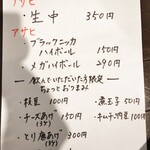 アサヒ
・生中 350円
アサヒ
・ブラックニッカ
ハイボール 150円
・メガハイボール 290円
— 飲んでいただいた方限定 —
ちょっとおつまみ
・枝豆 100円
・煮玉子 50円
・チーズあげ 150円
(3ケ)
・チャーシュー 100円
・とり唐あげ 300円
(3ケ)